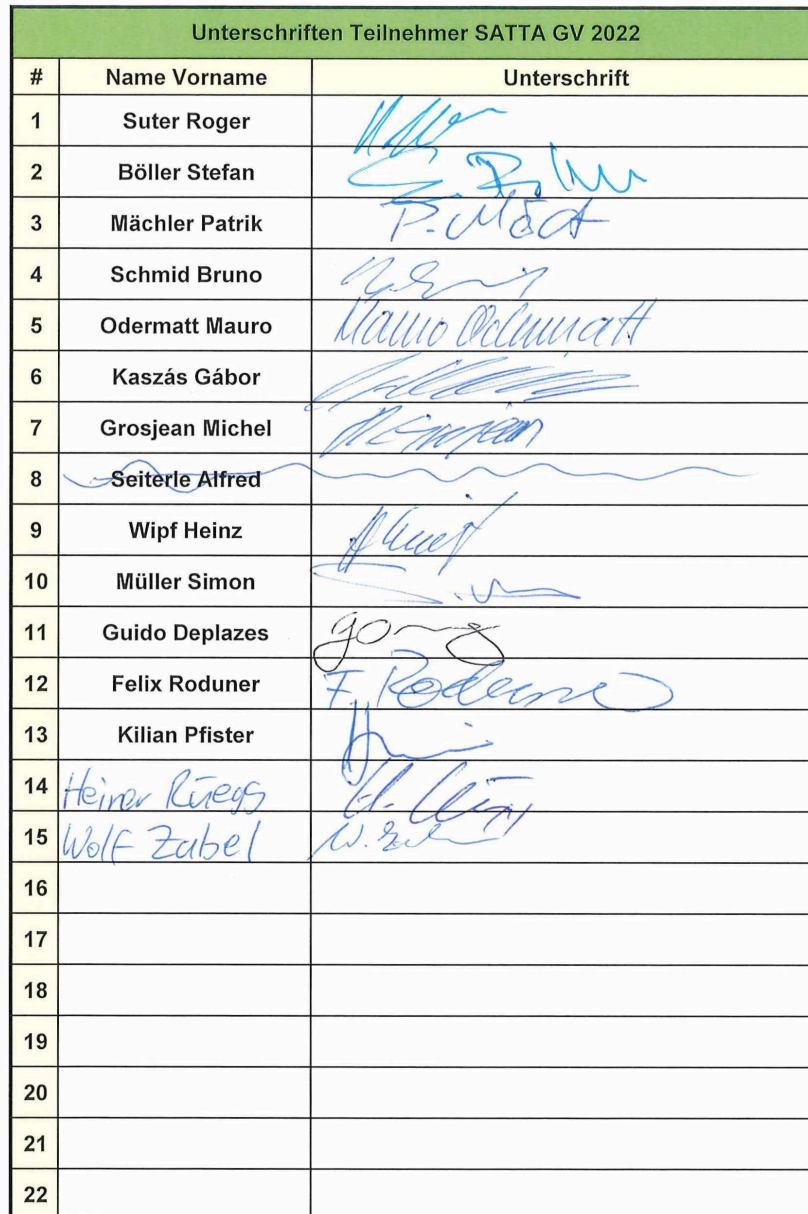 Unterschriften Teilnehmer SATTA GV 2022
# Name Vorname Unterschrift
1 Suter Roger
2 Böller Stefan
3 Mächler Patrik P. Mäch
4 Schmid Bruno
5 Odermatt Mauro Mauro Odermatt
6 Kaszás Gábor
7 Grosjean Michel
8 Seiterle Alfred
9 Wipf Heinz
10 Müller Simon
11 Guido Deplazes
12 Felix Roduner F. Roduner
13 Kilian Pfister
14 Heiner Rüegg
15 Wolf Zabel
16
17
18
19
20
21
22